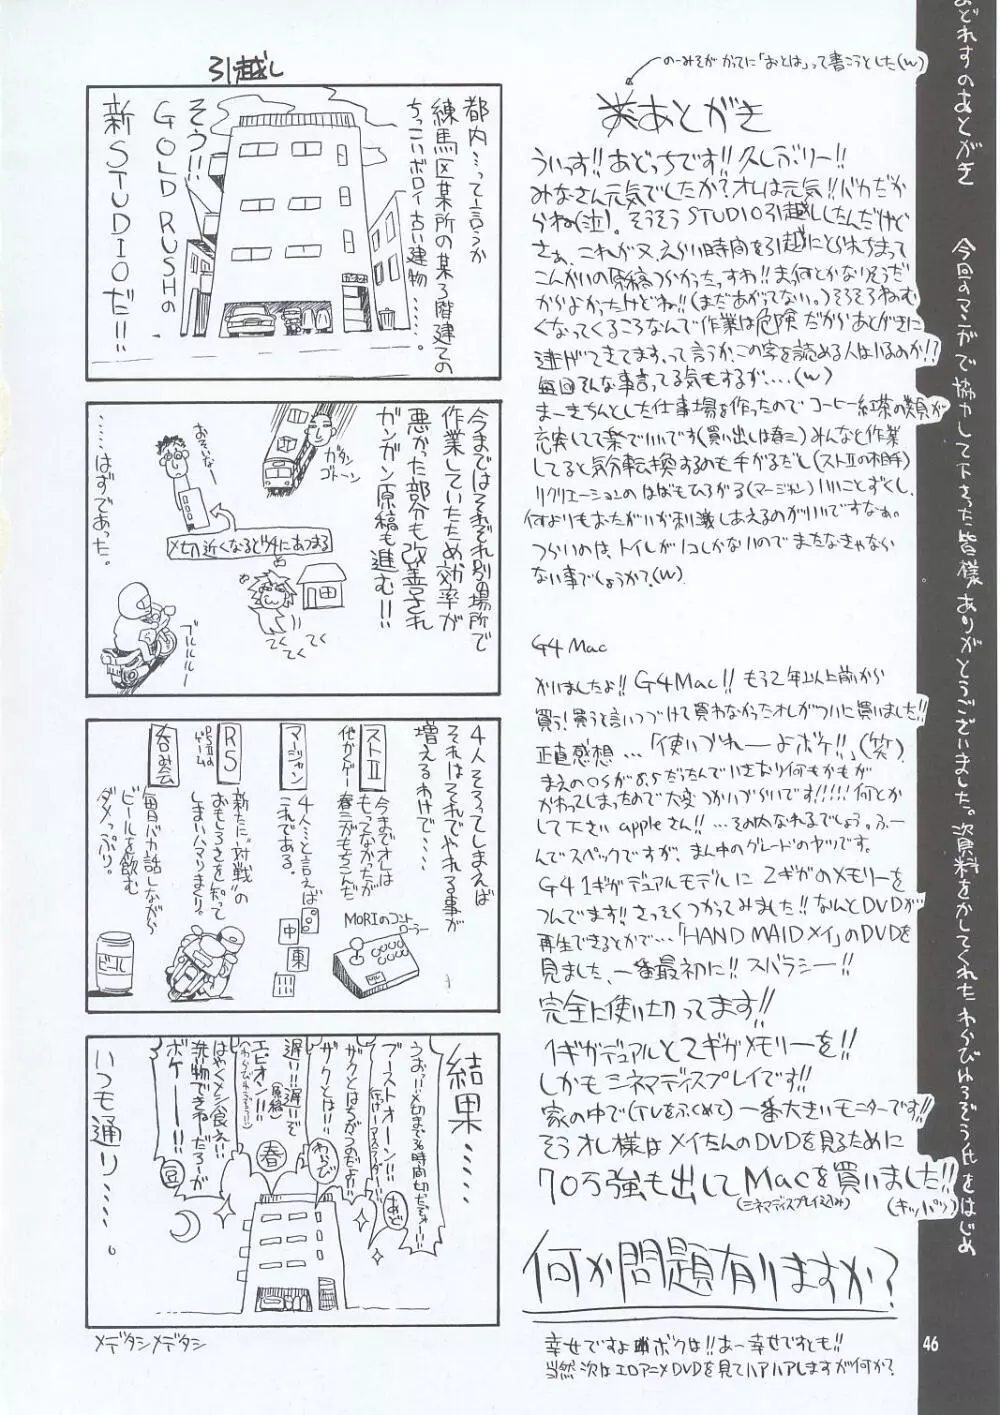 あどれすのあとがき
今回のマンガで協力して下さった皆様ありがとうございました。資料をかしてくれたわらびゅろぞう氏をはじめ
のーみそがかってに「おとは」って書こうとした(w)
※あとがき
ういっす!!あどっちです!!久しぶりー!!
みなさん元気でしたか?オレは元気!!バカだか
らね(泣)。そうそうSTUDIO引越ししたんだけど
さぁ、これが又、えらい時間を引越にとられちまって
こんかいの原稿つらかったっすわ!!ま、何とかなりそうだ
からよかったけどね!!(まだあがってない。)そろそろねむ
くなってくるころなんで作業は危険だからあとがきに
逃げてきてます、って言うか、この字を読める人はいるのか!?
毎回そんな事言ってる気もするが....(w)
まーきちんとした仕事場を作ったのでコーヒー紅茶の類が
充実してて楽でいいです(買い出しは春三)みんなと作業
してると気分転換するのも手がるだし(ストⅡの相手)
リクリエーションのはばもひろがる(マージャン)いいことずくし、
何よりもおたがいが刺激しあえるのがいいですなぁ。
つらいのは、トイレが1コしかないのでまたなきゃなら
ない事でしょうか?(w)
G4 Mac
かいましたよ!!G4Mac!!もう2年以上前から
買う!買うと言いつづけて買わなかったオレがついに買いました!!
正直感想…「使いづれーよボケ!!」(笑)
まえのOSが8.5だったんでいきなり何もかもが
かわってしまったので大変つかいづらいです!!!!!何とか
して下さいappleさん!!…そのためなれるでしょう。ふー
んでスペックですが、まん中のグレードのヤツです。
G4 1ギガデュアルモデルに2ギガのメモリーを
つんでます!!さっそくつかってみました!!なんとDVDが
再生できるとかで…「HAND MAIDメイ」のDVDを
見ました、一番最初に!!スバラシー!!
完全に使い切ってます!!
1ギガデュアルと2ギガメモリーを!!
しかもシネマディスプレイです!!
家の中で(TVをふくめて)一番大きいモニターです!!
そうオレ様はメイたんのDVDを見るために
70万強も出してMacを買いました!!
(シネマディスプレイ込み)
(キッパリ)
何か問題有りますか?
幸せですよボクは!!あー幸せですとも!!
当然次はエロアニメDVDを見てハアハアしますが何か?
46
引越し
都内…って言うか
練馬区某所の某3階建ての
ちっこいボロイ古い建物……。
そう!!
GOLD RUSHの
新STUDIOだ!!
今まではそれぞれ別の場所で
作業していたため効率が
悪かった部分も改善され
ガンガン原稿も進む!!
ガタン
ゴトーン
おそいなー
〆切近くなるとココにあつまる
てくてく
てくてく
ブルルルー
……はずであった。
4人そろってしまえば
それはそれでやれる事が
増えるわけで……
ストⅡ
今までオレは
もってなかったが
春三がもちこんだ
マージャン
4人…と言えば
これである。
中
東
MORIのコントローラー
RS
PSⅡのゲーム
新たに"対戦"の
おもしろさを知って
しまいハマりまくり。
呑み会
毎日バカ話しながら
ビールを飲む
ダメっぷり。
ビール
結果……
うおー!!〆切まで36時間切ったぞォー!!
ブーストオーン!!
あど
ザクとはちがうのだよ!!
ザクとは!!
わらび
遅い!!遅いぞ
エピオン!!
(原稿)
春
はやくメシ食え!!
洗い物できねーだろーが
ボケーー!!
豆
いつも通り……。
メデタシメデタシ